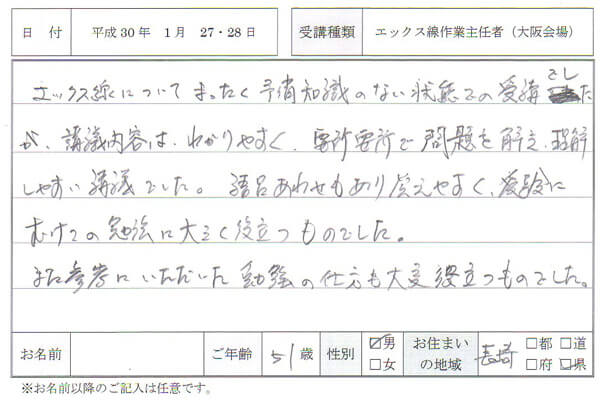 日 付 平成30年 1月 27・28日 受講種類 エックス線作業主任者（大阪会場）
エックス線についてまったく予備知識のない状態での受講でした
が、講議内容は、わかりやすく、要所要所で問題を解き、理解
しやすい講議でした。語呂あわせもあり覚えやすく、受験に
むけての勉強に大きく役立つものでした。
また参考にいただいた勉強の仕方も大変役立つものでした。
お名前 ご年齢 51歳 性別 ☑男 □女 お住まいの地域 長崎 □都 □道 □府 ☑県
※お名前以降のご記入は任意です。